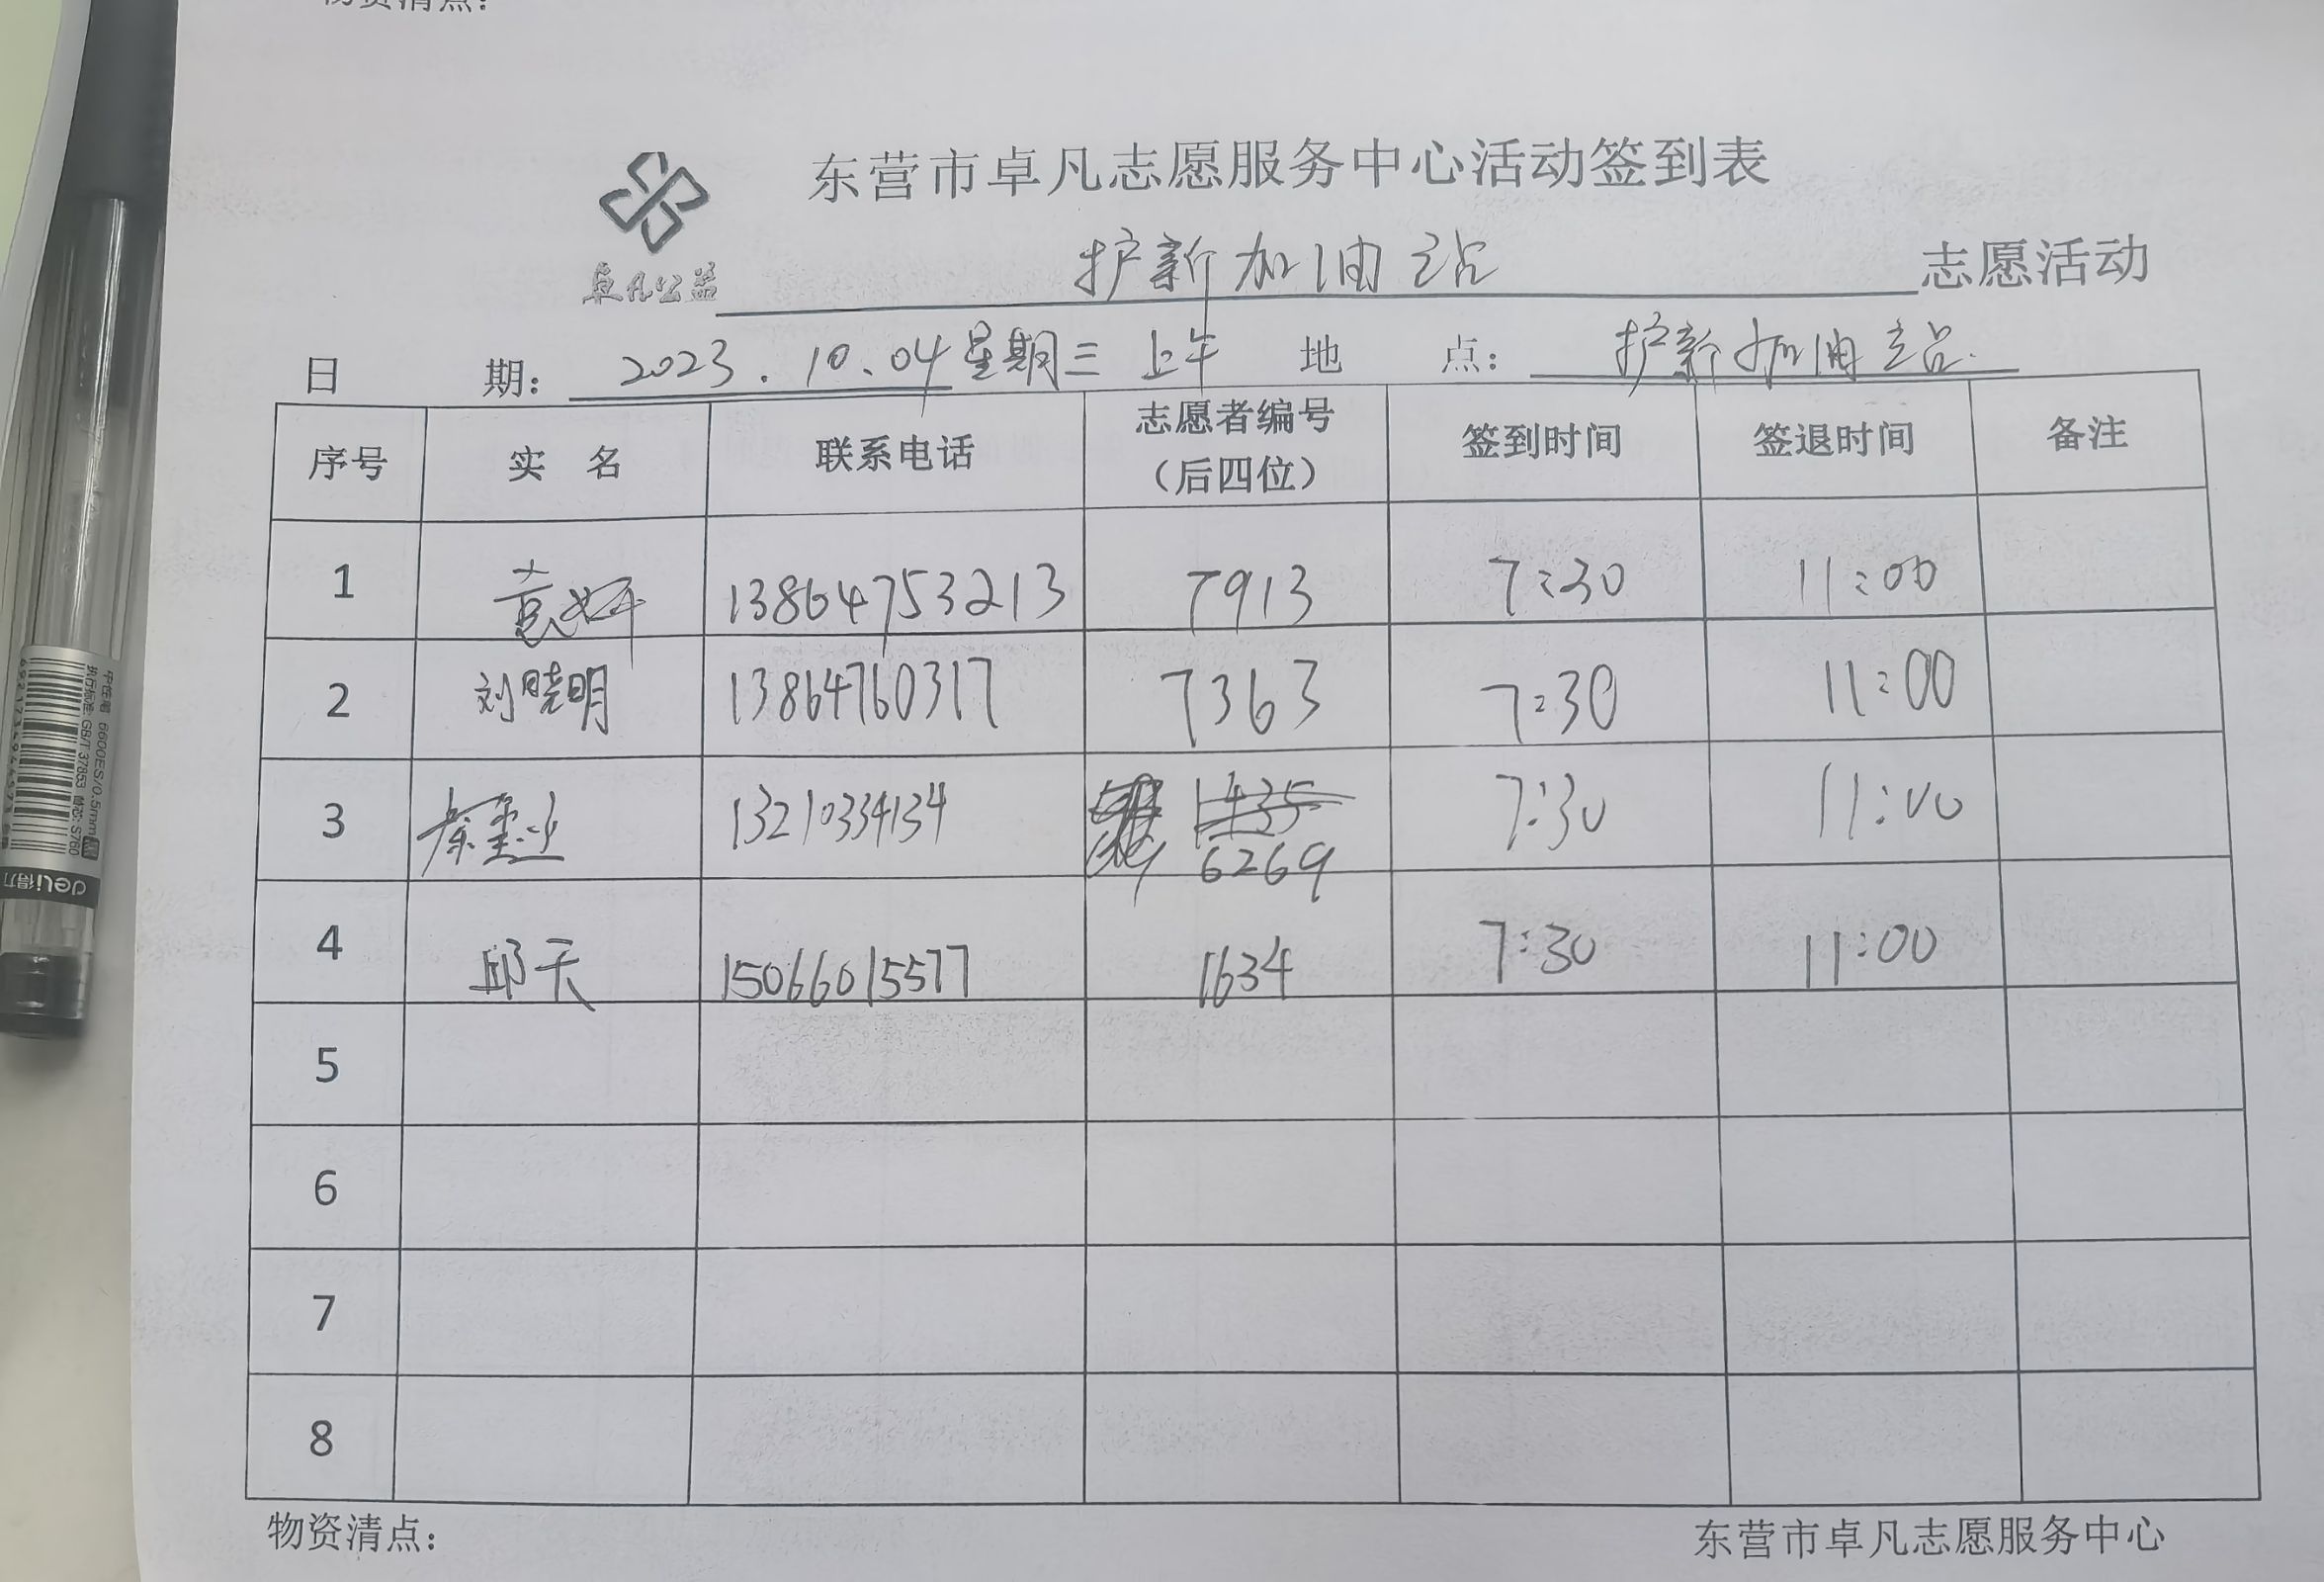 物资清点：
东营市卓凡志愿服务中心活动签到表
卓凡公益
护新加油站 志愿活动
日 期： 2023.10.04 星期三 上午 地 点： 护新加油站
序号 实 名 联系电话 志愿者编号（后四位） 签到时间 签退时间 备注
1 袁妍 13864753213 7913 7:30 11:00
2 刘晓明 13864760317 7363 7:30 11:00
3 13210334134 1435 6269 7:30 11:00
4 邱天 15066015577 1634 7:30 11:00
5
6
7
8
物资清点： 东营市卓凡志愿服务中心
中性笔 6600ES/0.5mm
执行标准: GB/T 37853
deli得力